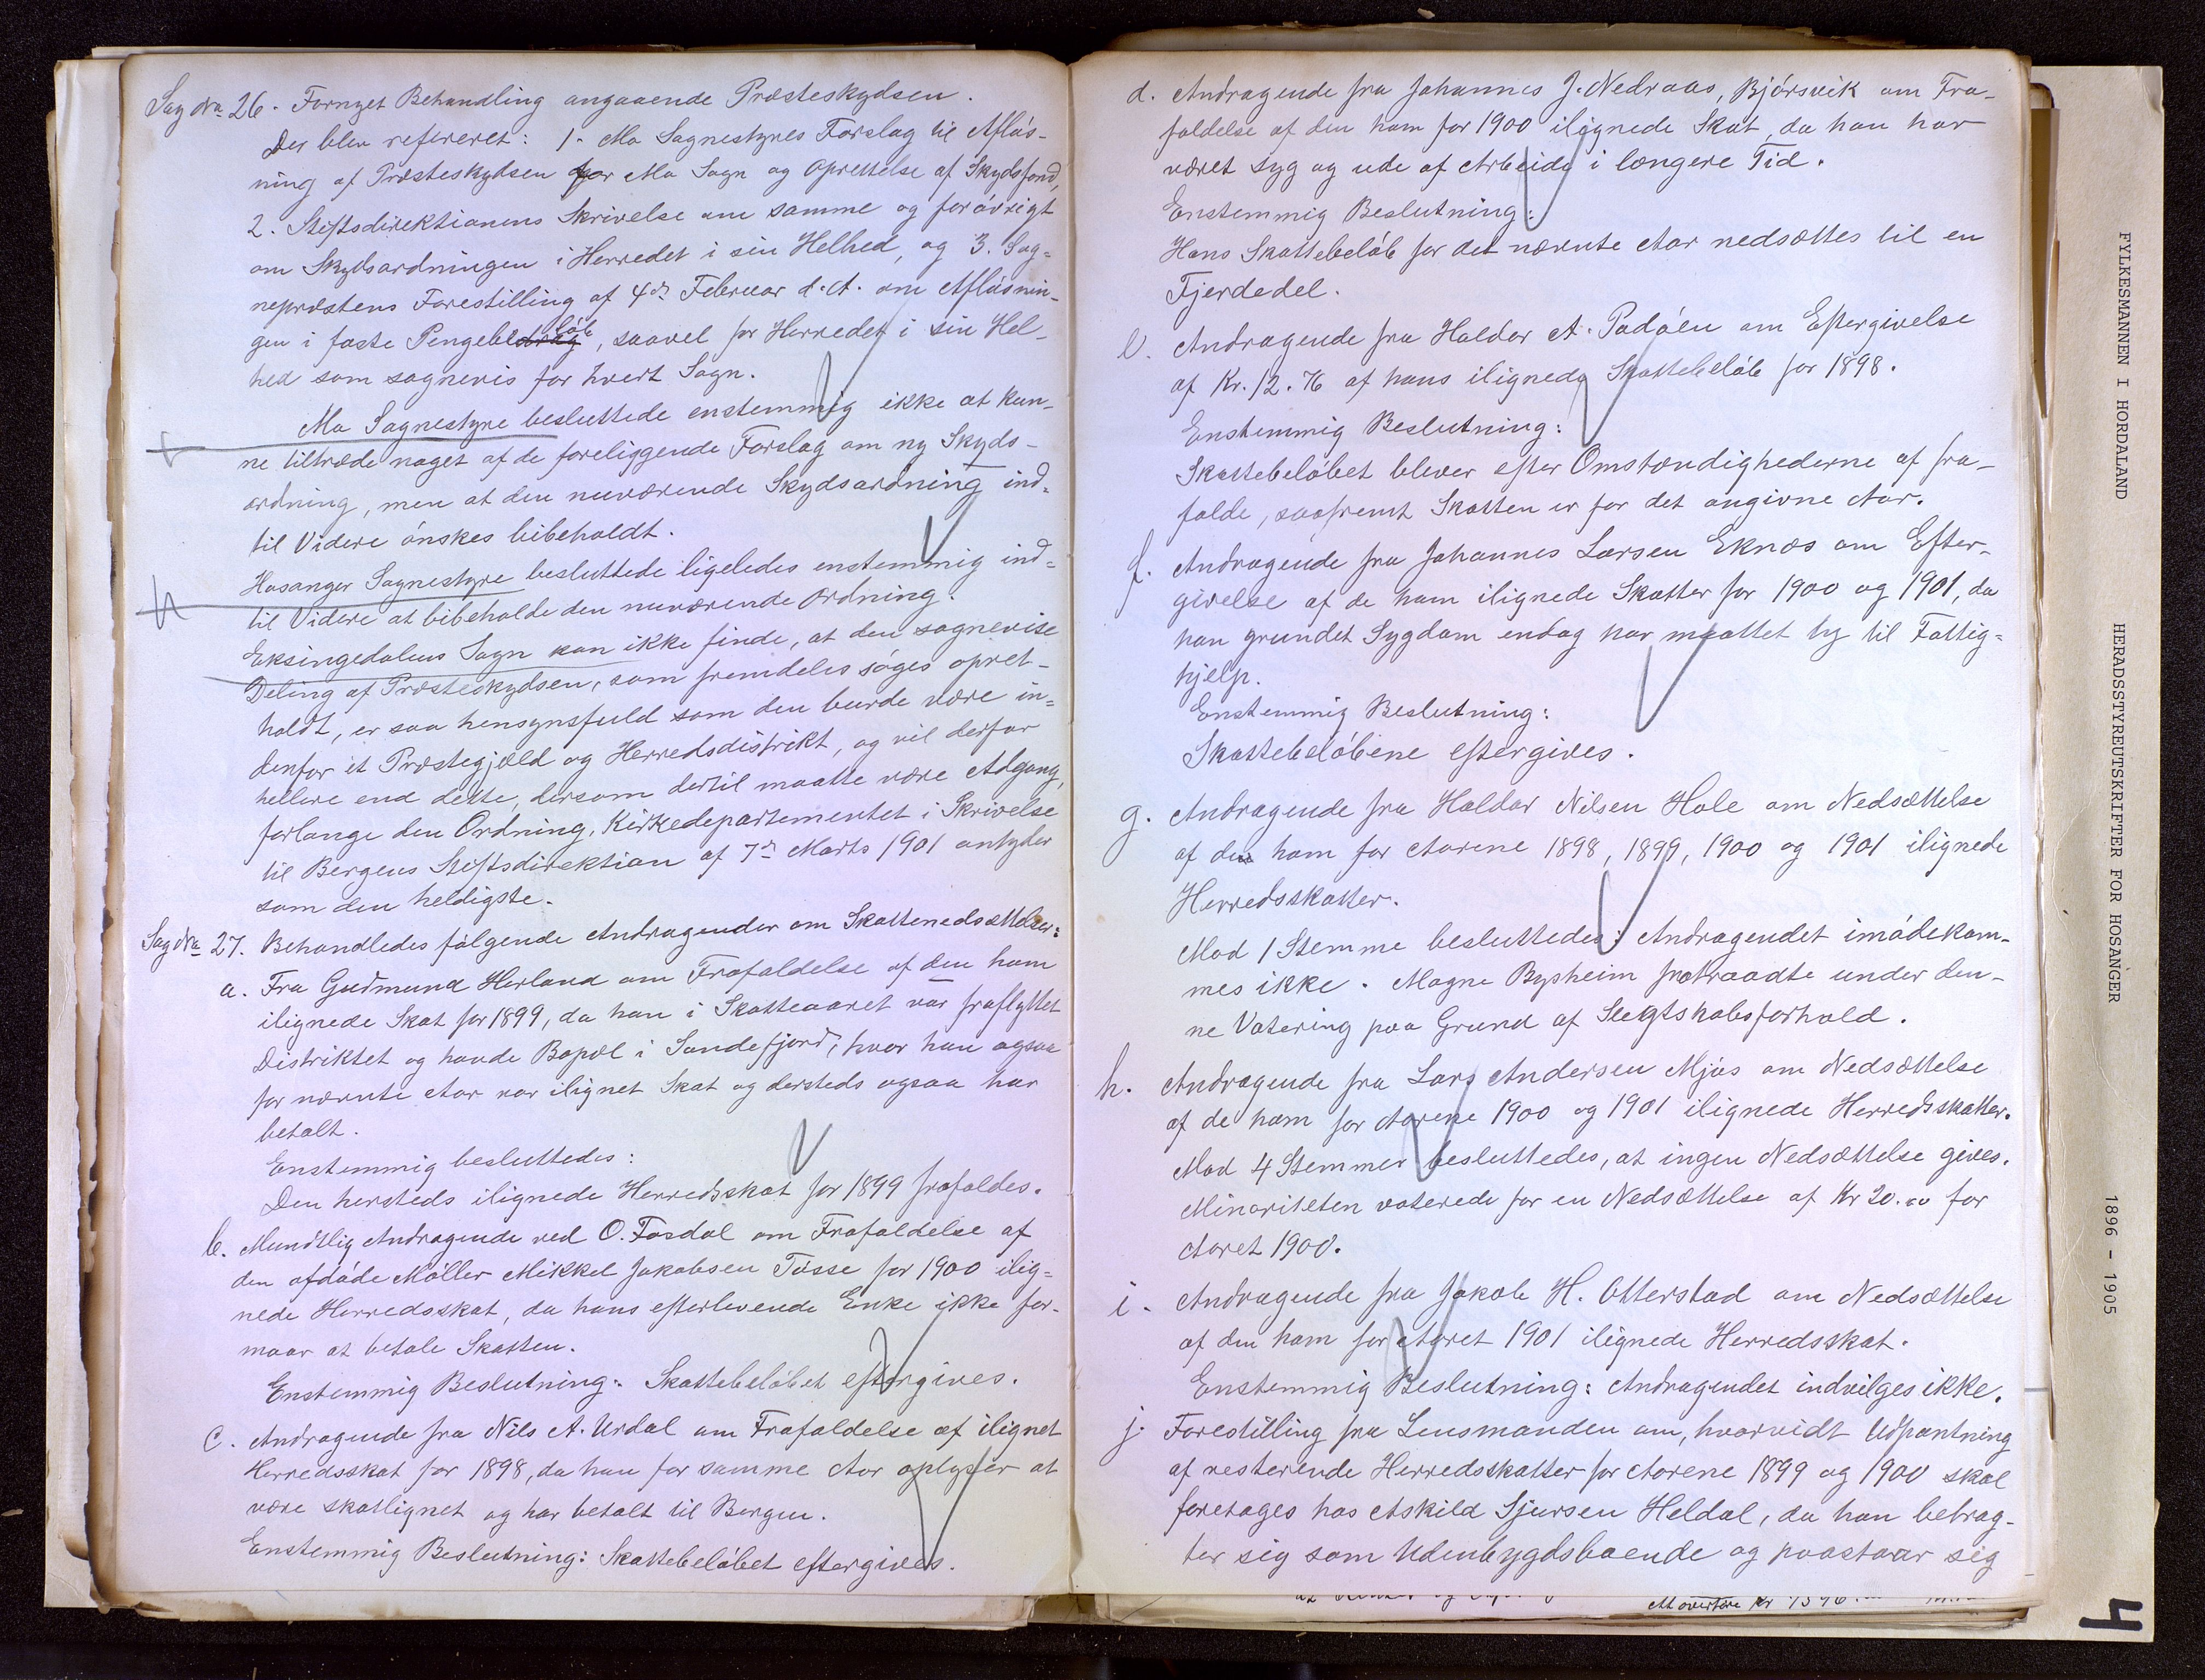 Sag No 26. Fornyet Behandling angaaende Præsteskydsen.
Der blev refereret: 1. Mo Sognestyres Forslag til Afløs-
ning af Præsteskydsen for Mo Sogn og Oprettelse af Skydsfond,
2. Stiftsdirektionens Skrivelse om samme og forøvrigt
om Skydsordningen i Herredet i sin Helhed, og 3. Sog-
nepræstens Forestilling af 4de Februar d.A. om Afløsnin-
gen i faste Pengebeløb, saavel for Herredet i sin Hel-
hed som sognevis for hvert Sogn.
Mo Sognestyre besluttede enstemmig ikke at kun-
ne tiltræde noget af de foreliggende Forslag om ny Skyds-
ordning, men at den nuværende Skydsordning ind-
til Videre ønskes bibeholdt.
Hosanger Sognestyre besluttede ligeledes enstemmig ind-
til Videre at bibeholde den nuværende Ordning.
Eksingedalens Sogn kan ikke finde, at den sognevise
Deling af Præsteskydsen, som fremdeles søges opret-
holdt, er saa hensynsfuld som den burde være in-
denfor et Præstegjæld og Herredsdistrikt, og vil derfor
hellere end dette, dersom dertil maatte være Adgang,
forlange den Ordning, Kirkedepartementet i Skrivelse
til Bergens Stiftsdirektion af 7de Marts 1901 antyder
som den heldigste.
Sag No 27. Behandledes følgende Andragender om Skattenedsættelser:
a. Fra Gudmund Herland om Frafaldelse af den ham
ilignede Skat for 1899, da han i Skatteaaret var fraflyttet
Distriktet og havde Bopæl i Sandefjord, hvor han ogsaa
for nævnte Aar var ilignet Skat og dersteds ogsaa har
betalt.
Enstemmig besluttedes:
Den hersteds ilignede Herredsskat for 1899 frafaldes.
b. Mundtlig Andragende ved O. Fosdal om Frafaldelse af
den afdøde Møller Mikkel Jakobsen Tøsse for 1900 ilig-
nede Herredsskat, da hans efterlevende Enke ikke for-
maar at betale Skatten.
Enstemmig Beslutning: Skattebeløbet eftergives.
c. Andragende fra Nils A. Urdal om Frafaldelse af ilignet
Herredsskat for 1898, da han for samme Aar oplyser at
være skatlignet og har betalt til Bergen.
Enstemmig Beslutning: Skattebeløbet eftergives.
d. Andragende fra Johannes J. Nedraas, Bjørsvik om Fra-
faldelse af den ham for 1900 ilignede Skat, da han har
været syg og ude af Arbeide i længere Tid.
Enstemmig Beslutning:
Hans Skattebeløb for det nævnte Aar nedsættes til en
Fjerdedel.
e. Andragende fra Haldor A. Padøen om Eftergivelse
af Kr. 12.76 af hans ilignede Skattebeløb for 1898.
Enstemmig Beslutning:
Skattebeløbet bliver efter Omstændighederne at fra-
falde, saafremt Skatten er for det angivne Aar.
f. Andragende fra Johannes Larsen Eknæs om Efter-
givelse af de ham ilignede Skatter for 1900 og 1901, da
han grundet Sygdom endog har maattet ty til Fattig-
hjelp.
Enstemmig Beslutning:
Skattebeløbene eftergives.
g. Andragende fra Haldor Nilsen Hole om Nedsættelse
af de ham for Aarene 1898, 1899, 1900 og 1901 ilignede
Herredsskatter.
Mod 1 Stemme besluttedes: Andragendet imødekom-
mes ikke. Magne Bysheim fratraadte under den-
ne Votering paa Grund af Slegtskabsforhold.
h. Andragende fra Lars Andersen Mjøs om Nedsættelse
af de ham for Aarene 1900 og 1901 ilignede Herredsskatter.
Mod 4 Stemmer besluttedes, at ingen Nedsættelse gives.
Minoriteten voterede for en Nedsættelse af Kr 20.00 for
Aaret 1900.
i. Andragende fra Jakob H. Otterstad om Nedsættelse
af den ham for Aaret 1901 ilignede Herredsskat.
Enstemmig Beslutning: Andragendet indvilges ikke.
j. Forestilling fra Lensmanden om, hvorvidt Udpantning
af resterende Herredsskatter for Aarene 1899 og 1900 skal
foretages hos Askild Sjursen Heldal, da han betrag-
ter sig som Udenbygdsboende og paastaar sig
At overføre Kr
FYLKESMANNEN I HORDALAND HERADSSTYREUTSKRIFTER FOR HOSANGER 1896 - 1905
4